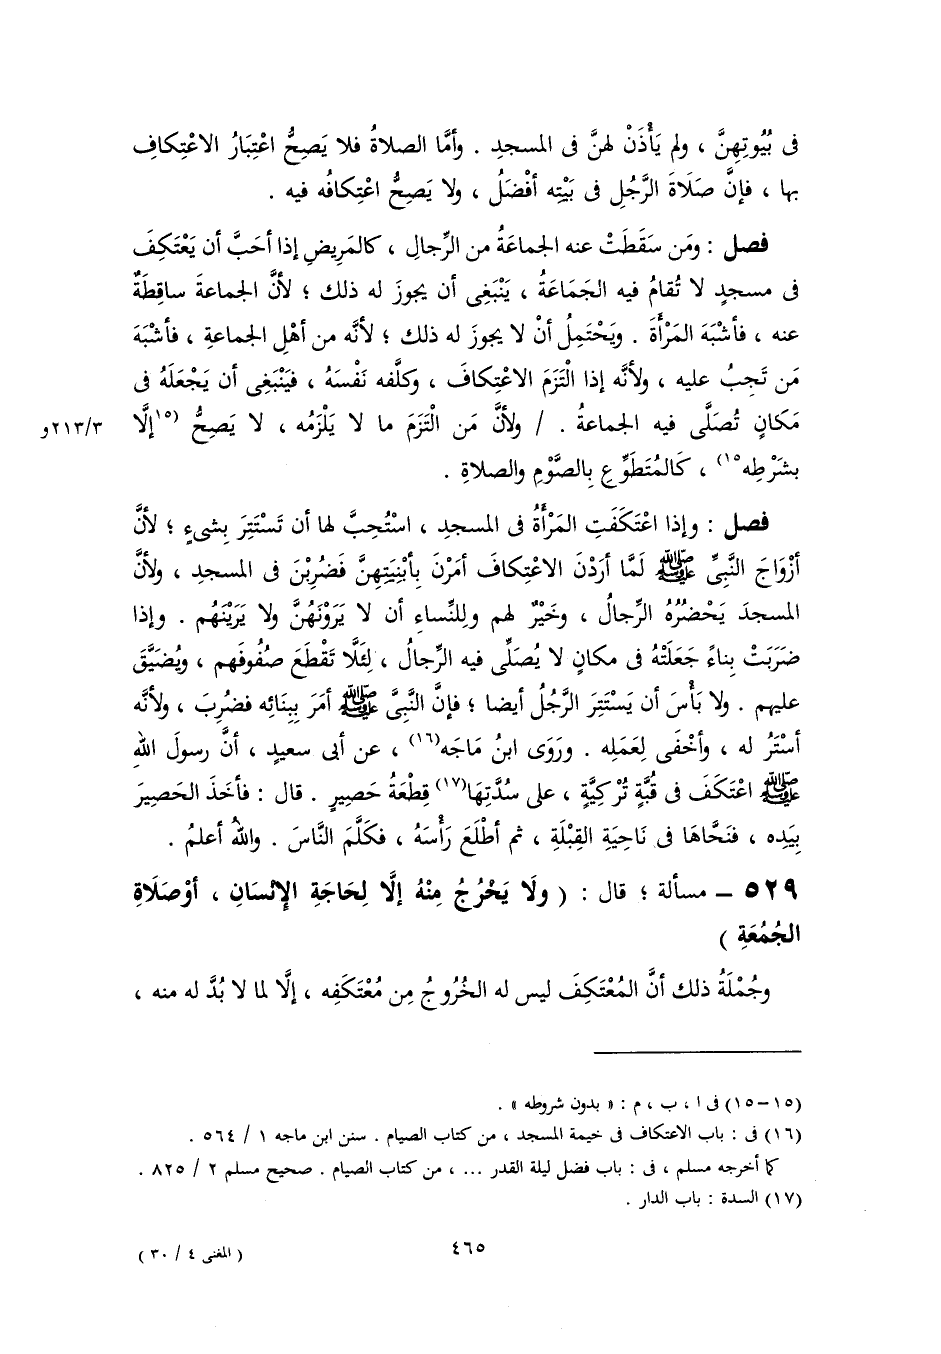 فى بُيُوتِهِنَّ ، ولم يَأْذَنْ لهنَّ فى المسجدِ . وأمَّا الصلاةُ فلا يَصِحُّ اعْتِبَارُ الاعْتِكافِ
بها ، فإنَّ صَلَاةَ الرَّجُلِ فى بَيْتِه أفْضَلُ ، ولا يَصِحُّ اعْتِكافُه فيه .
فصل : ومَن سَقَطَتْ عنه الجماعَةُ من الرِّجالِ ، كالمَرِيضِ إذا أحَبَّ أن يَعْتَكِفَ
فى مسجدٍ لا تُقامُ فيه الجَمَاعَةُ ، يَنْبَغِى أن يجوزَ له ذلك ؛ لأنَّ الجماعةَ ساقِطَةٌ
عنه ، فأشْبَهَ المَرْأَةَ . ويَحْتَمِلُ أنْ لا يجوزَ له ذلك ؛ لأنَّه من أهْلِ الجماعةِ ، فأشْبَهَ
مَن تَجِبُ عليه ، ولأنَّه إذا الْتَزَمَ الاعْتِكافَ ، وكلَّفه نَفْسَهُ ، فيَنْبَغِى أن يَجْعَلَهُ فى
مَكانٍ تُصَلَّى فيه الجماعةُ . / ولأنَّ مَن الْتَزَمَ ما لا يَلْزَمُه ، لا يَصِحُّ (١٥إلَّا ٢١٣/٣و
بشَرْطِه١٥) ، كَالمُتَطَوِّعِ بِالصَّوْمِ والصلاةِ .
فصل : وإذا اعْتَكَفَتِ المَرْأَةُ فى المسجدِ ، اسْتُحِبَّ لها أن تَسْتَتِرَ بِشىءٍ ؛ لأنَّ
أزْوَاجَ النَّبِىِّ ﷺ لَمَّا أرَدْنَ الاعْتِكافَ أمَرْنَ بِأبْنِيَتِهِنَّ فَضُرِبْنَ فى المسجدِ ، ولأنَّ
المسجدَ يَحْضُرُهُ الرِّجالُ ، وخَيْرٌ لهم ولِلنِّساءِ أن لا يَرَوْنَهُنَّ ولا يَرَيْنَهُم . وإذا
ضَرَبَتْ بِناءً جَعَلَتْهُ فى مكانٍ لا يُصَلِّى فيه الرِّجالُ ، لِئَلَّا تَقْطَعَ صُفُوفَهم ، ويُضَيَّقَ
عليهم . ولا بَأْسَ أن يَسْتَتِرَ الرَّجُلُ أيضا ؛ فإنَّ النَّبِىَّ ﷺ أمَرَ بِبِنَائِه فضُرِبَ ، ولأنَّه
أسْتَرُ له ، وأخْفَى لِعَمَلِه . ورَوَى ابنُ مَاجَه(١٦) ، عن أبى سعيدٍ ، أنَّ رسولَ اللهِ
ﷺ اعْتَكَفَ فى قُبَّةٍ تُرْكِيَّةٍ ، على سُدَّتِهَا(١٧) قِطْعَةُ حَصِيرٍ . قال : فأخَذَ الحَصِيرَ
بِيَدِه ، فنَحَّاهَا فى نَاحِيَةِ القِبْلَةِ ، ثم أطْلَعَ رَأْسَهُ ، فكَلَّمَ النَّاسَ . واللهُ أعلمُ .
٥٢٩ – مسألة ؛ قال : ( ولَا يَخْرُجُ مِنْهُ إلَّا لِحَاجَةِ الإِنْسَانِ ، أوْ صَلَاةِ
الجُمُعَةِ )
وجُمْلَةُ ذلك أنَّ المُعْتَكِفَ ليس له الخُرُوجُ مِن مُعْتَكَفِه ، إلَّا لما لا بُدَّ له منه ،
(١٥-١٥) فى ا ، ب ، م : « بدون شروطه » .
(١٦) فى : باب الاعتكاف فى خيمة المسجد ، من كتاب الصيام . سنن ابن ماجه ١ / ٥٦٤ .
كما أخرجه مسلم ، فى : باب فضل ليلة القدر ... ، من كتاب الصيام . صحيح مسلم ٢ / ٨٢٥ .
(١٧) السدة : باب الدار .
٤٦٥
( المغنى ٤ / ٣٠ )